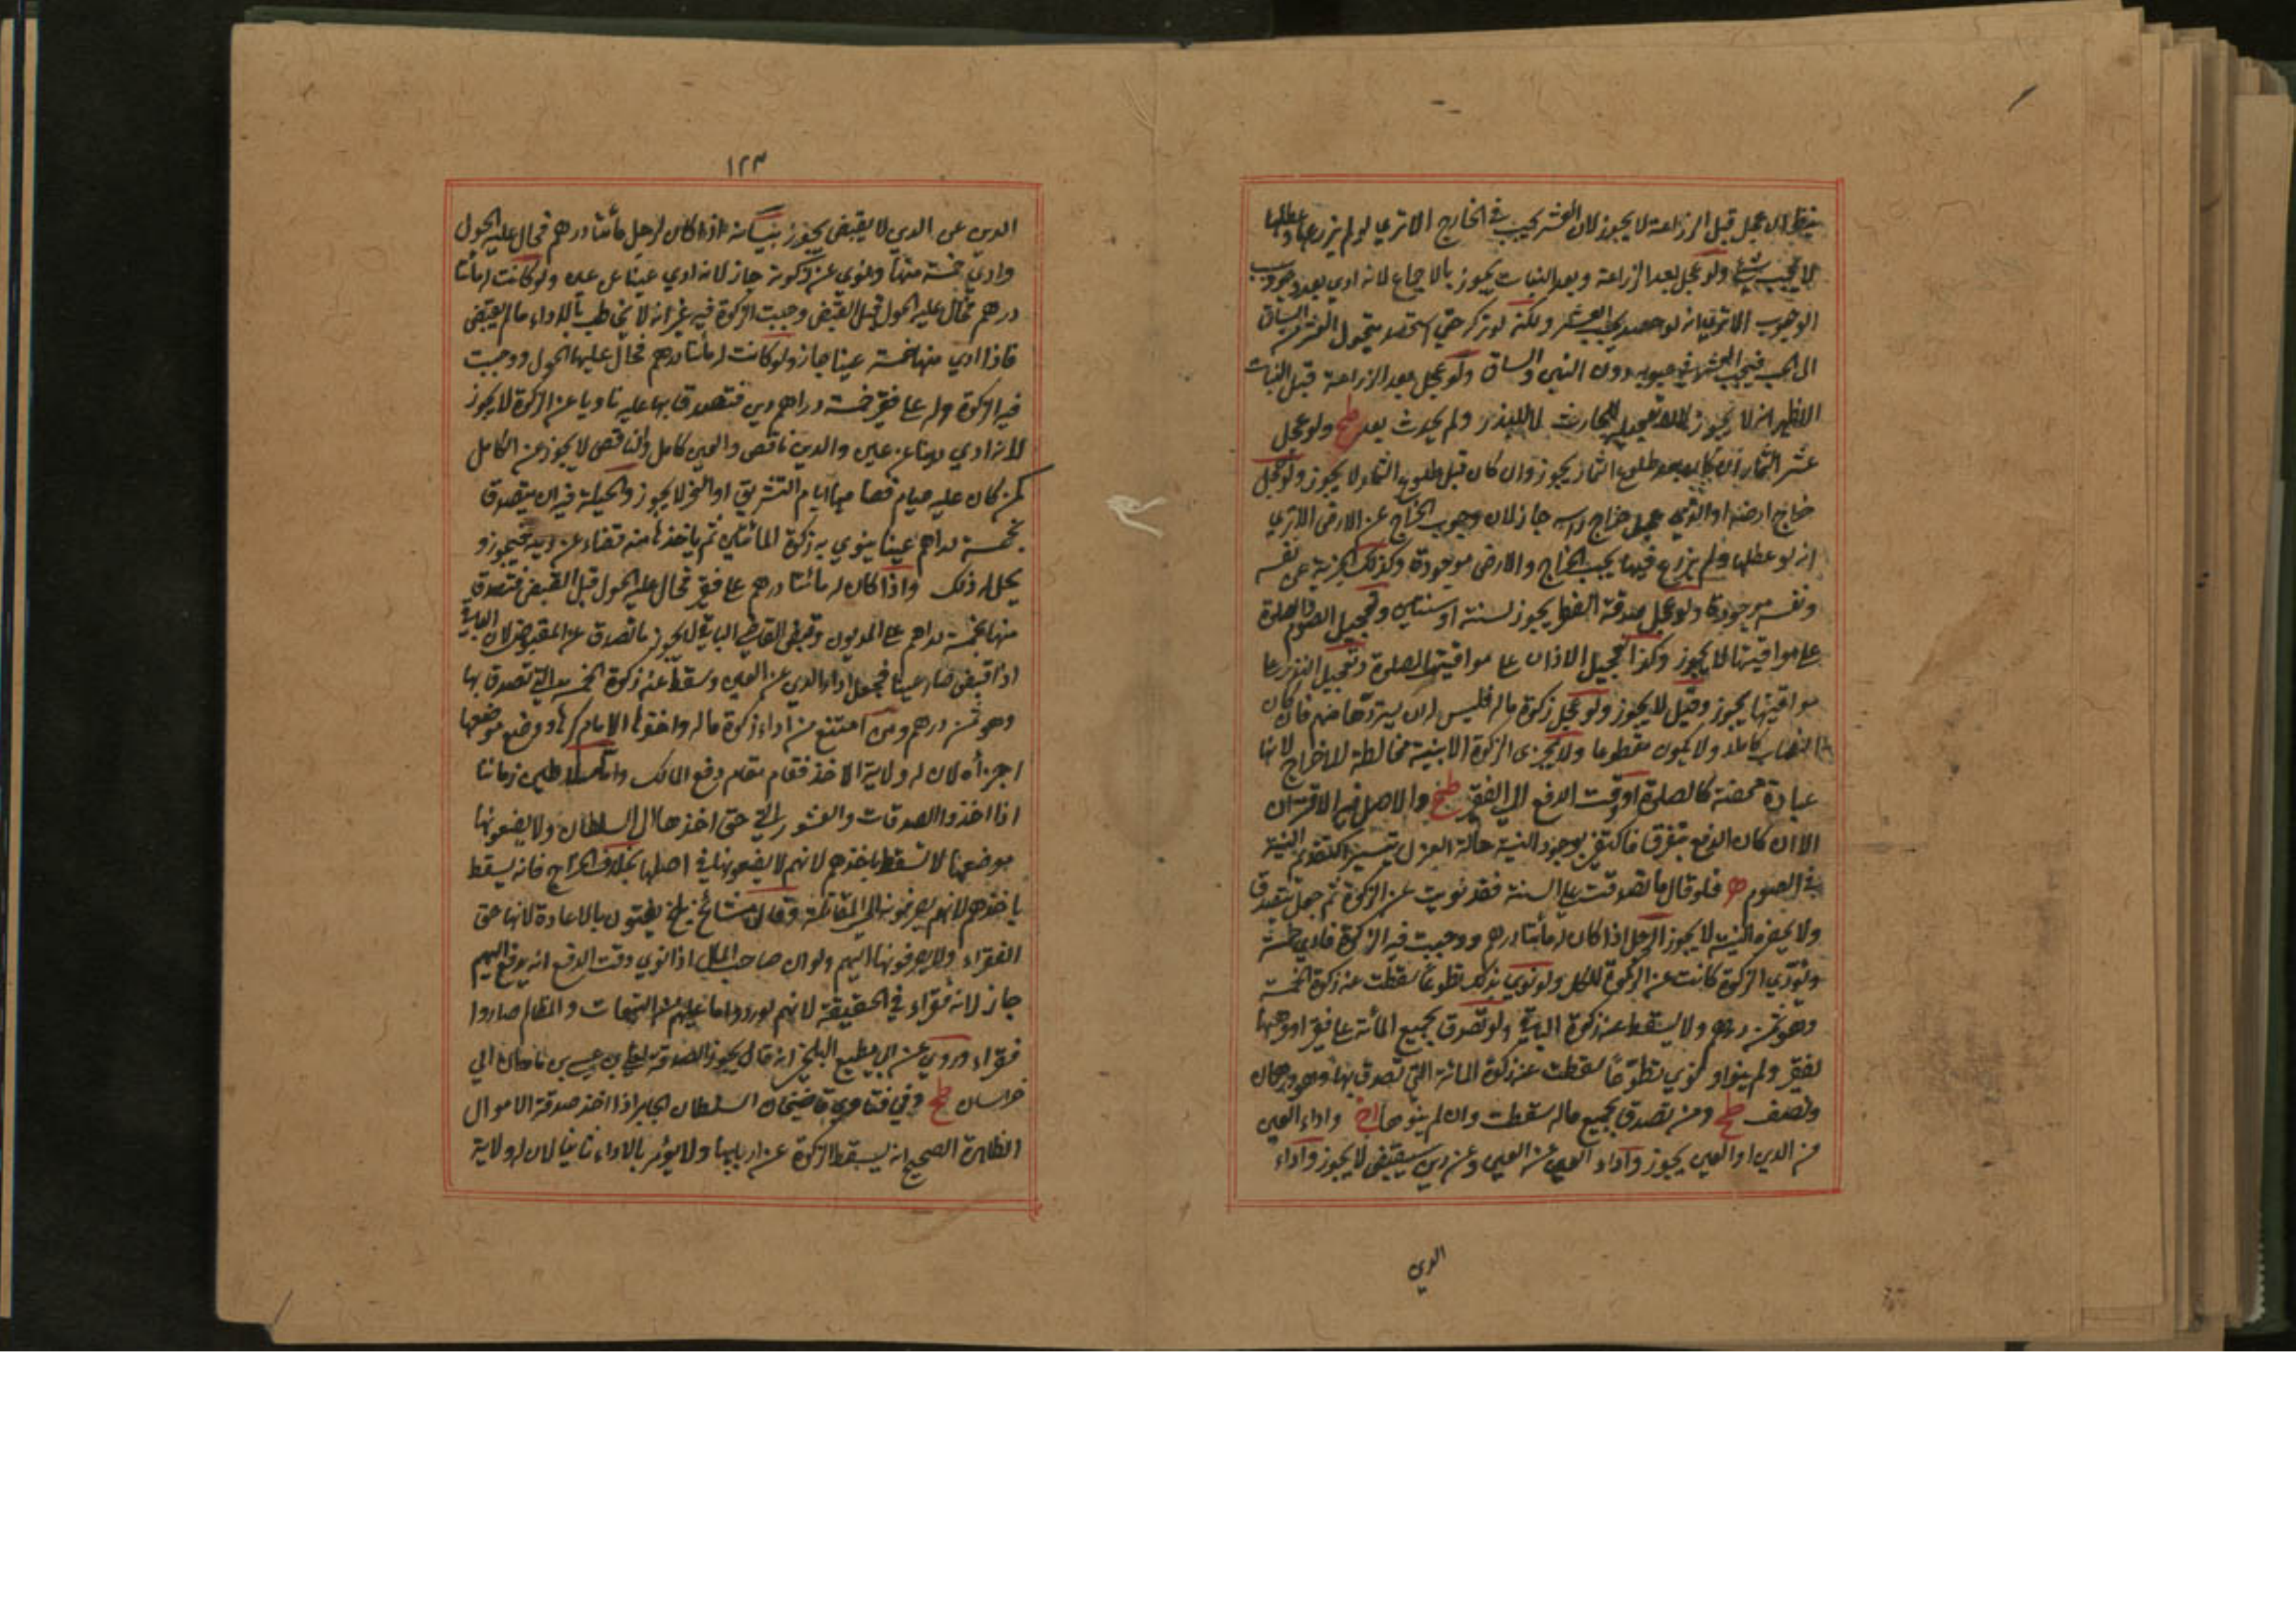 ينظر ان عجل قبل الزراعة لا يجوز لان العشر يجب في الخارج الا تري لو لم يزرعها وعطلها
لا يجب شئ ولو عجل بعد الزراعة وبعد النبات يجوز بالاجماع لانه ادي بعد وجوب سبب
الوجوب الا تري انه لو حصد يجب العشر ولكنه لو ترك حتي استحصد يتحول العشر من الساق
الى الحب فيجب العشر في حبوبه دون التبن والساق ولو عجل بعد الزراعة قبل النبات
الاظهر انه لا يجوز لان التعجيل للحادث لا للبذر ولم يحدث بعد طح ولو عجل
عشر الثمار ان كان بعد طلوع الثمار يجوز وان كان قبل طلوع الثمار لا يجوز ولو عجل
خراج ارضه او الذمي عجل خراج راسه جاز لان وجوب الخراج عن الارض الا تري
انه لو عطلها ولم يزرع فيها يجب الخراج والارض موجودة وكذلك الجزية عن نفسه
ونفسه موجودة ولو عجل صدقة الفطر يجوز لسنة او سنتين وتعجيل الصوم والصلوة
على مواقيتها لا يجوز وكذا تعجيل الاذان على مواقيتها لصلوة وتعجيل النذر على
مواقيتها يجوز وقيل لا يجوز ولو عجل زكوة ماله فليس له ان يستردها منه فان كان
النصاب كاملا ولا يكون مقطوعا ولا يجزى الزكوة الا بنية مخالطة للاخراج لانها
عبادة محضة كالصلوة او وقت الدفع الى الفقير طح والاصل فيه الاقتران
الا ان كان الدفع يتفرق فاكتفى بوجود النية حالة العزل تيسيرا كتقديم النية
في الصوم ه فلو قال ما تصدقت على السنة فقد نويت عن الزكوة ثم جعل يتصدق
ولا يحضره النية لا يجوز الرجل اذا كان له مأتا درهم ووجبت فيه الزكوة فادي خمسة
ونوي الزكوة كانت عن الزكوة للكل ولو نوي بذلك تطوعا سقطت عنه زكوة الخمسة
وهو ثمن درهم ولا يسقط عنه زكوة الباقي ولو تصدق بجميع المأتة على فقير او وهبها
لفقير ولم ينو او نوي تطوعا سقطت عنه زكوة المائة التي تصدق بها وهو درهمان
ونصف طح ومن تصدق بجميع ماله سقطت وان لم ينوها واداء العين
من الدين او العين يجوز واداء العين عن العين وعن دين سيقبض لا يجوز واداء
الدين
١٢٣
الدين عن الدين لا يقبض يجوز بيانه اذا كان لرجل مأتا درهم فحال عليه الحول
وادي خمسة منها ونوي عن زكوته جاز لانه ادي عينا عن عين ولو كانت له مأتا
درهم فحال عليه الحول قبل القبض وجبت الزكوة فيه غير انه لا يخاطب بالاداء مالم يقبض
فاذا ادي منها خمسة عينا جاز ولو كانت له مأتا درهم فحال عليها الحول ووجبت
فيه الزكوة وله على فقير خمسة دراهم دين فتصدق بها عليه ناويا عن الزكوة لا يجوز
لانه ادي دينا عن عين والدين ناقص والعين كامل والناقص لا يجوز عن الكامل
كمن كان عليه صيام فصامها ايام التشريق او النحر لا يجوز والحيلة فيه ان يتصدق
بخمسة دراهم عينا ينوي به زكوة المائتين ثم يأخذها منه قضاء عن دينه فيجوز و
يحل له ذلك واذا كان له مأتا درهم على فقير فحال عليه الحول قبل القبض فتصدق
منها بخمسة دراهم على المديون وقبض القابض الباقي لا يجوز ما تصدق عن المقبوض لان الباقي
اذا قبض صار عينا فجعل اداء الدين عن العين وسقط عنه زكوة الخمسة التي تصدق بها
وهو ثمن درهم ومن امتنع من اداء زكوة ماله واخذها الامام كرها ووضع موضعها
اجزأه لان له ولاية الاخذ فقام مقام دفع المالك واما سلاطين زماننا
اذا اخذوا الصدقات والعشور التي حق اخذها الى السلطان ولا يضعونها
موضعها لا تسقط باخذهم لانهم لا يضعونها في اصلها بخلاف الخراج فانه يسقط
باخذهم لانهم يصرفونه الى المقاتلة وقال مشائخ بلخ يفتون بالاعادة لانها حق
الفقراء ولا يصرفونها اليهم ولو ان صاحب المال اذا نوي وقت الدفع انه يدفع اليهم
جاز لانه فقراء في الحقيقة لانهم لو ردوا ما عليهم من التبعات والمظالم صاروا
فقراء وروي عن ابي مطيع البلخي انه قال يجوز الصدقة لعلي بن عيسى بن ماهان الي
خراسان طح وفي فتاوي قاضيخان السلطان الجابر اذا اخذ صدقة الاموال
الظاهرة الصحيح انه يسقط الزكوة عن اربابها ولا يؤمر بالاداء ثانيا لان له ولاية